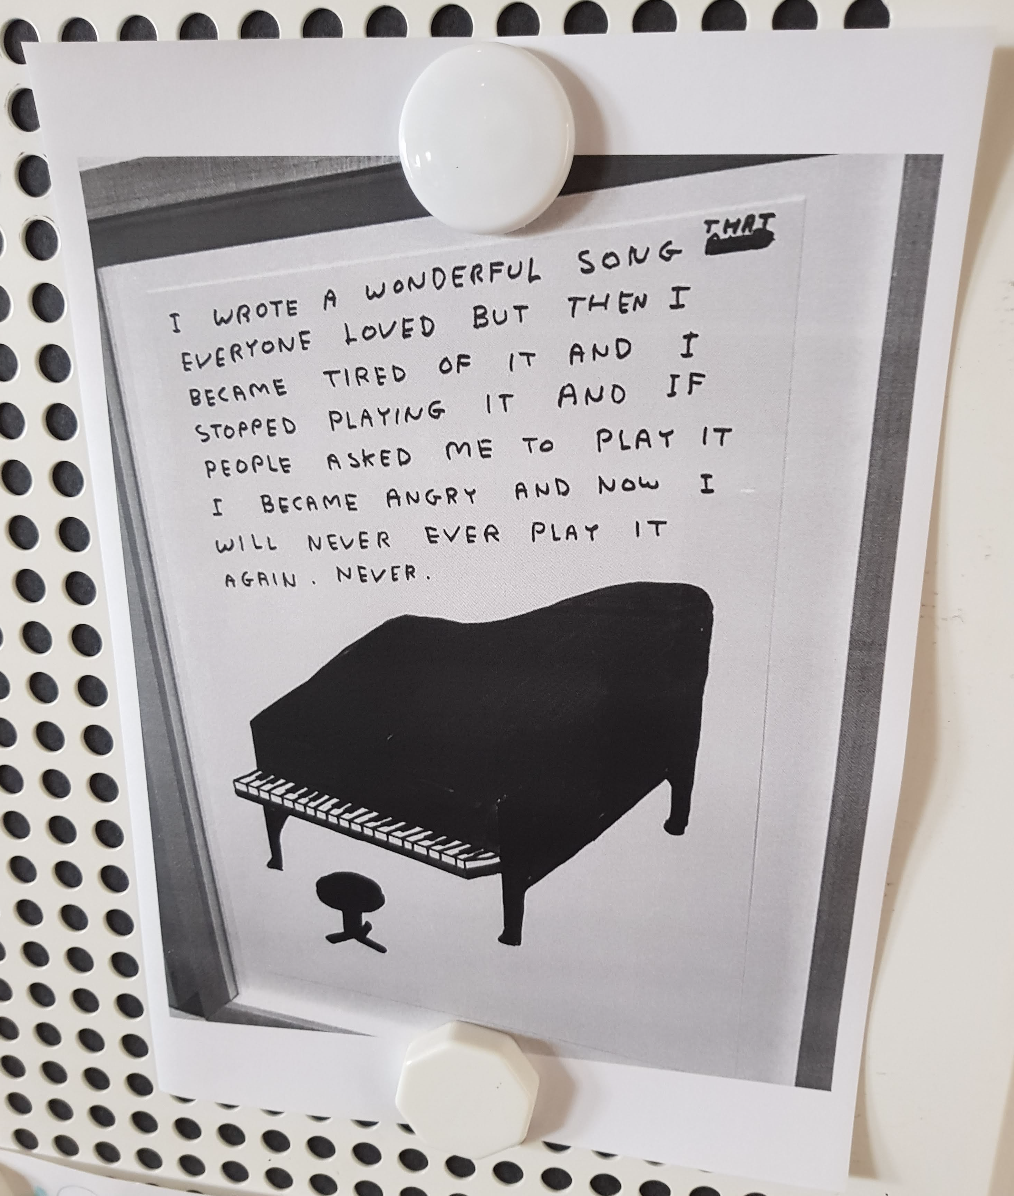 I WROTE A WONDERFUL SONG THAT
EVERYONE LOVED BUT THEN I
BECAME TIRED OF IT AND I
STOPPED PLAYING IT AND IF
PEOPLE ASKED ME TO PLAY IT
I BECAME ANGRY AND NOW I
WILL NEVER EVER PLAY IT
AGAIN. NEVER.